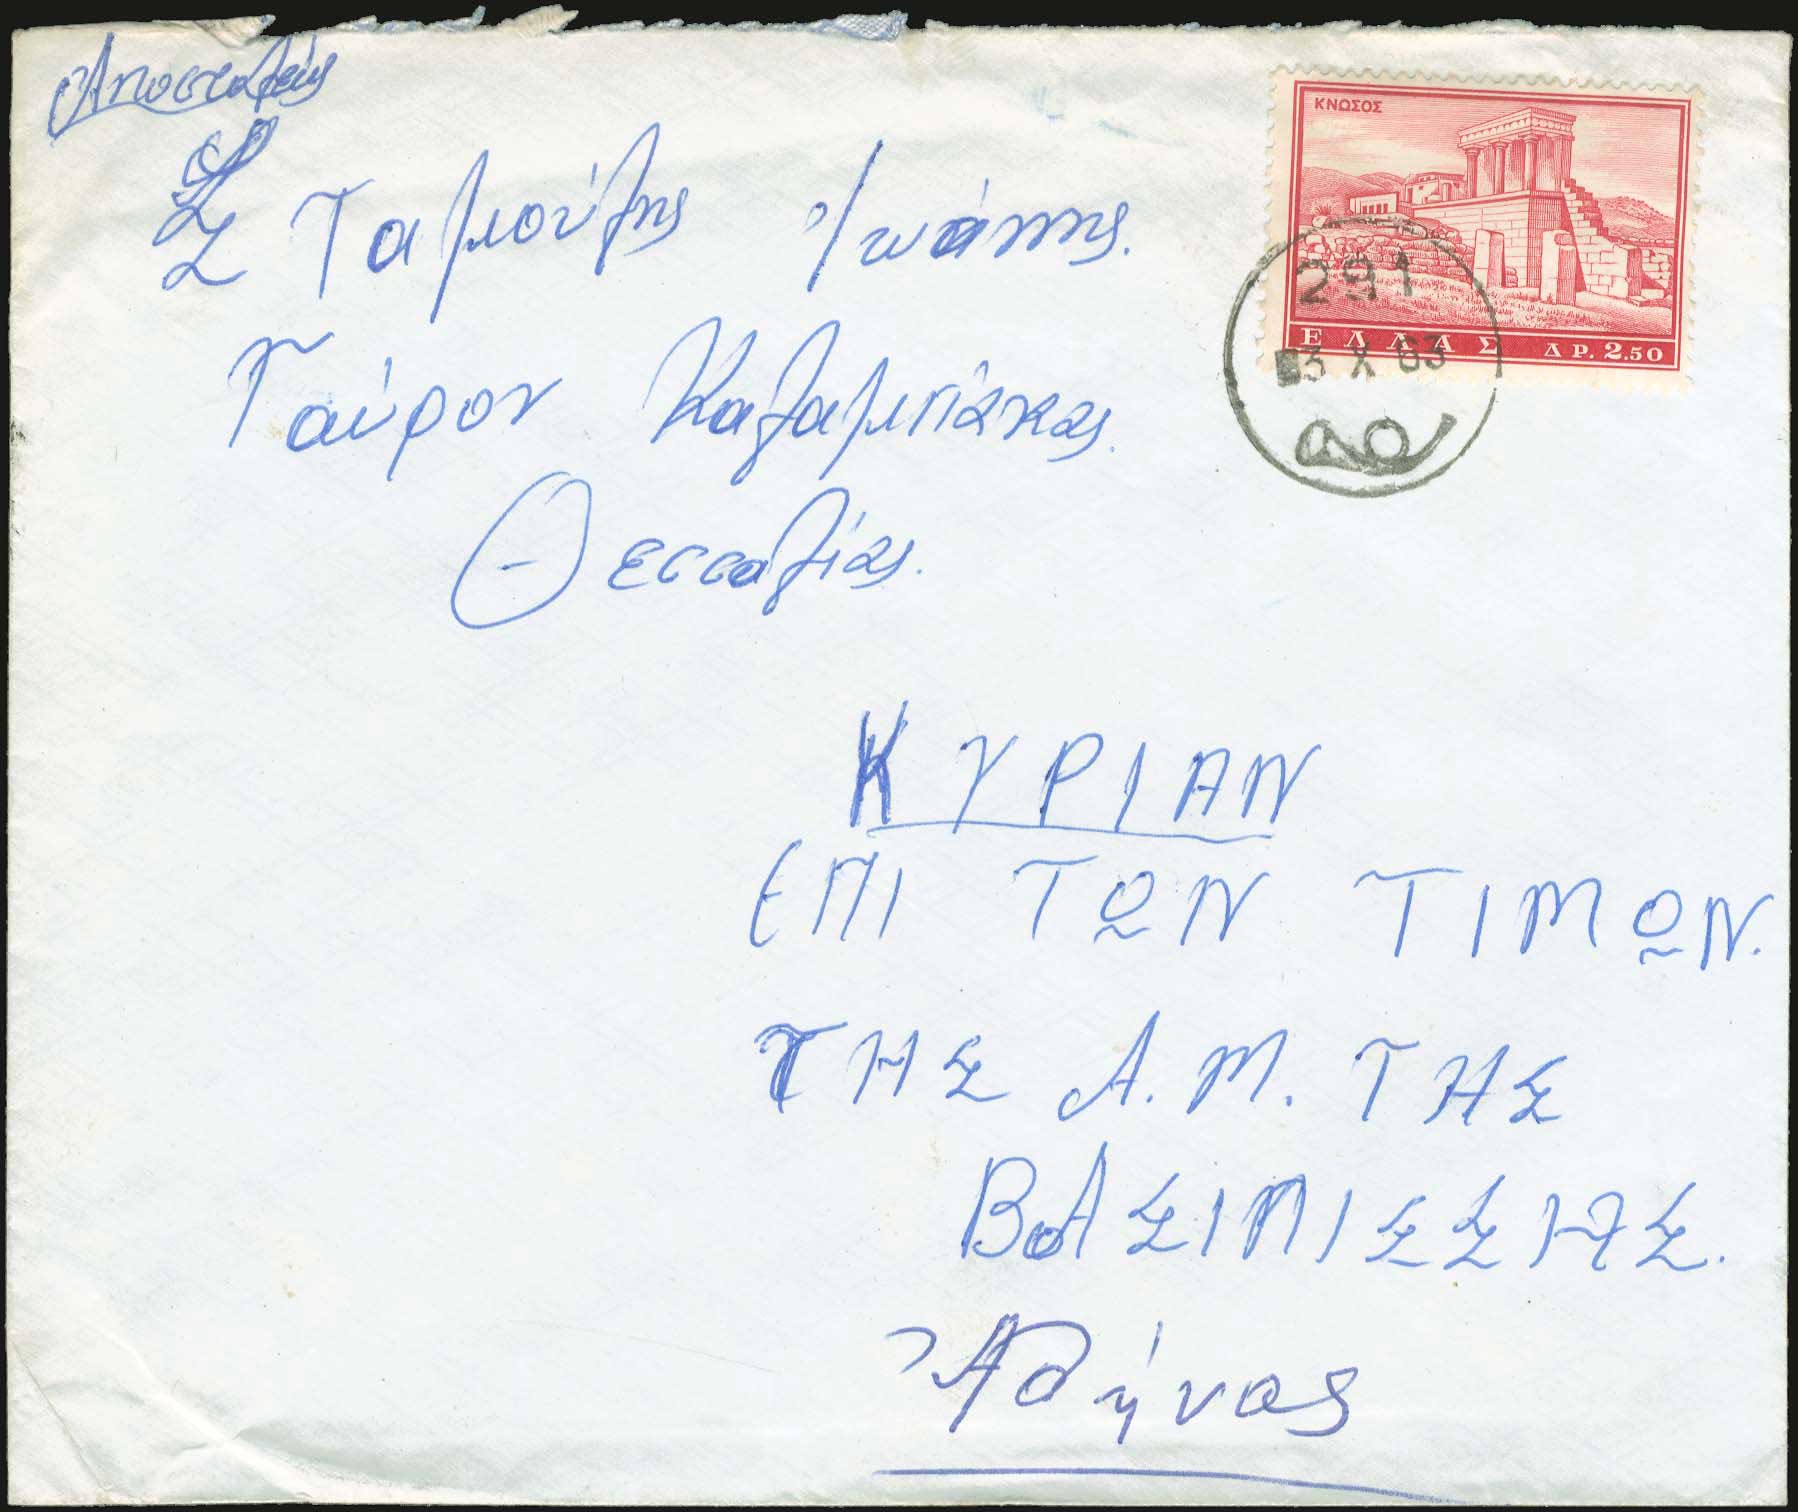 Αποστολεύς
ΣΤαμούλης Ιωάννης.
Γαύρον Καλαμπάκας.
Θεσσαλίας.
ΚΝΩΣΟΣ
ΕΛΛΑΣ ΔΡ. 2.50
291
3 X 63
ΚΥΡΙΑΝ
ΕΠΙ ΤΩΝ ΤΙΜΩΝ.
ΤΗΣ Α.Μ. ΤΗΣ
ΒΑΣΙΛΙΣΣΗΣ.
Αθήνας